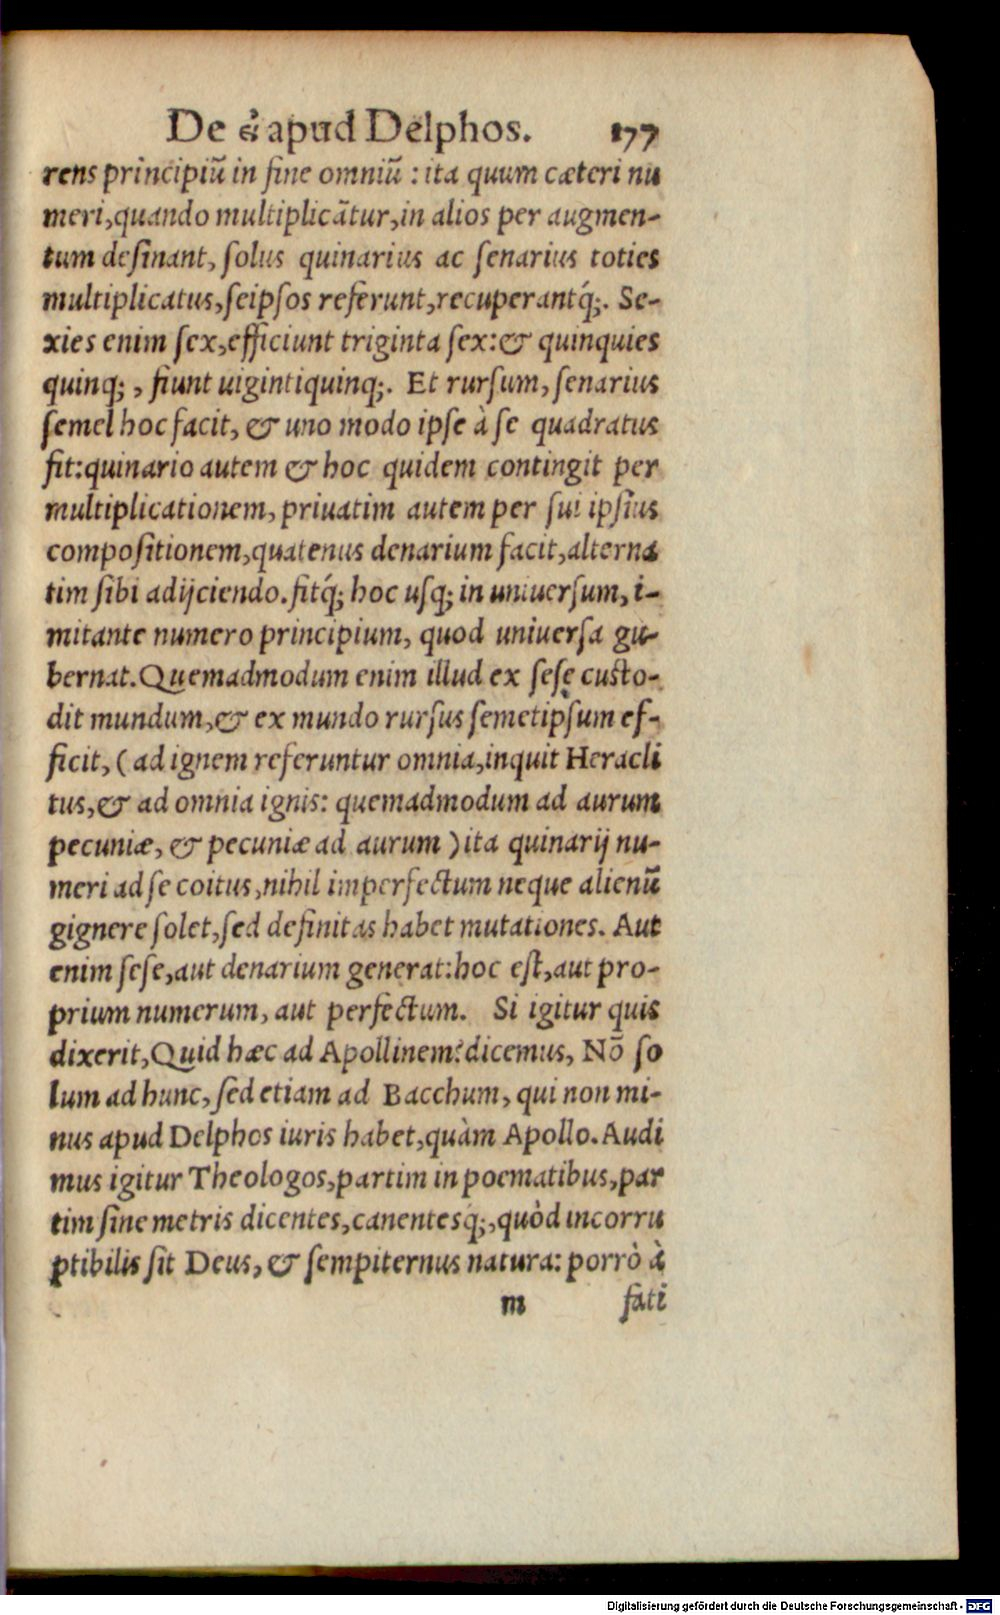 De εἶ apud Delphos. 177
rens principiũ in fine omniũ : ita quum cæteri nu
meri,quando multiplicãtur,in alios per augmen-
tum desinant, solus quinarius ac senarius toties
multiplicatus,seipsos referunt,recuperantq́;. Se-
xies enim sex,efficiunt triginta sex:& quinquies
quinq; , fiunt uigintiquinq;. Et rursum, senarius
semel hoc facit, & uno modo ipse à se quadratus
fit:quinario autem & hoc quidem contingit per
multiplicationem, priuatim autem per sui ipsius
compositionem,quatenus denarium facit,alterna
tim sibi adijciendo.fitq́; hoc usq; in uniuersum, i-
mitante numero principium, quod uniuersa gu-
bernat.Quemadmodum enim illud ex sese custo-
dit mundum,& ex mundo rursus semetipsum ef-
ficit, ( ad ignem referuntur omnia,inquit Heracli
tus,& ad omnia ignis: quemadmodum ad aurum
pecuniæ, & pecuniæ ad aurum ) ita quinarij nu-
meri ad se coitus,nihil imperfectum neque alienũ
gignere solet,sed definitas habet mutationes. Aut
enim sese,aut denarium generat:hoc est,aut pro-
prium numerum, aut perfectum. Si igitur quis
dixerit,Quid hæc ad Apollinem? dicemus, Nõ so
lum ad hunc, sed etiam ad Bacchum, qui non mi-
nus apud Delphos iuris habet,quàm Apollo.Audi
mus igitur Theologos,partim in poematibus,par
tim sine metris dicentes,canentesq́;,quòd incorru
ptibilis sit Deus, & sempiternus natura: porrò à
m fati
Digitalisierung gefördert durch die Deutsche Forschungsgemeinschaft - DFG